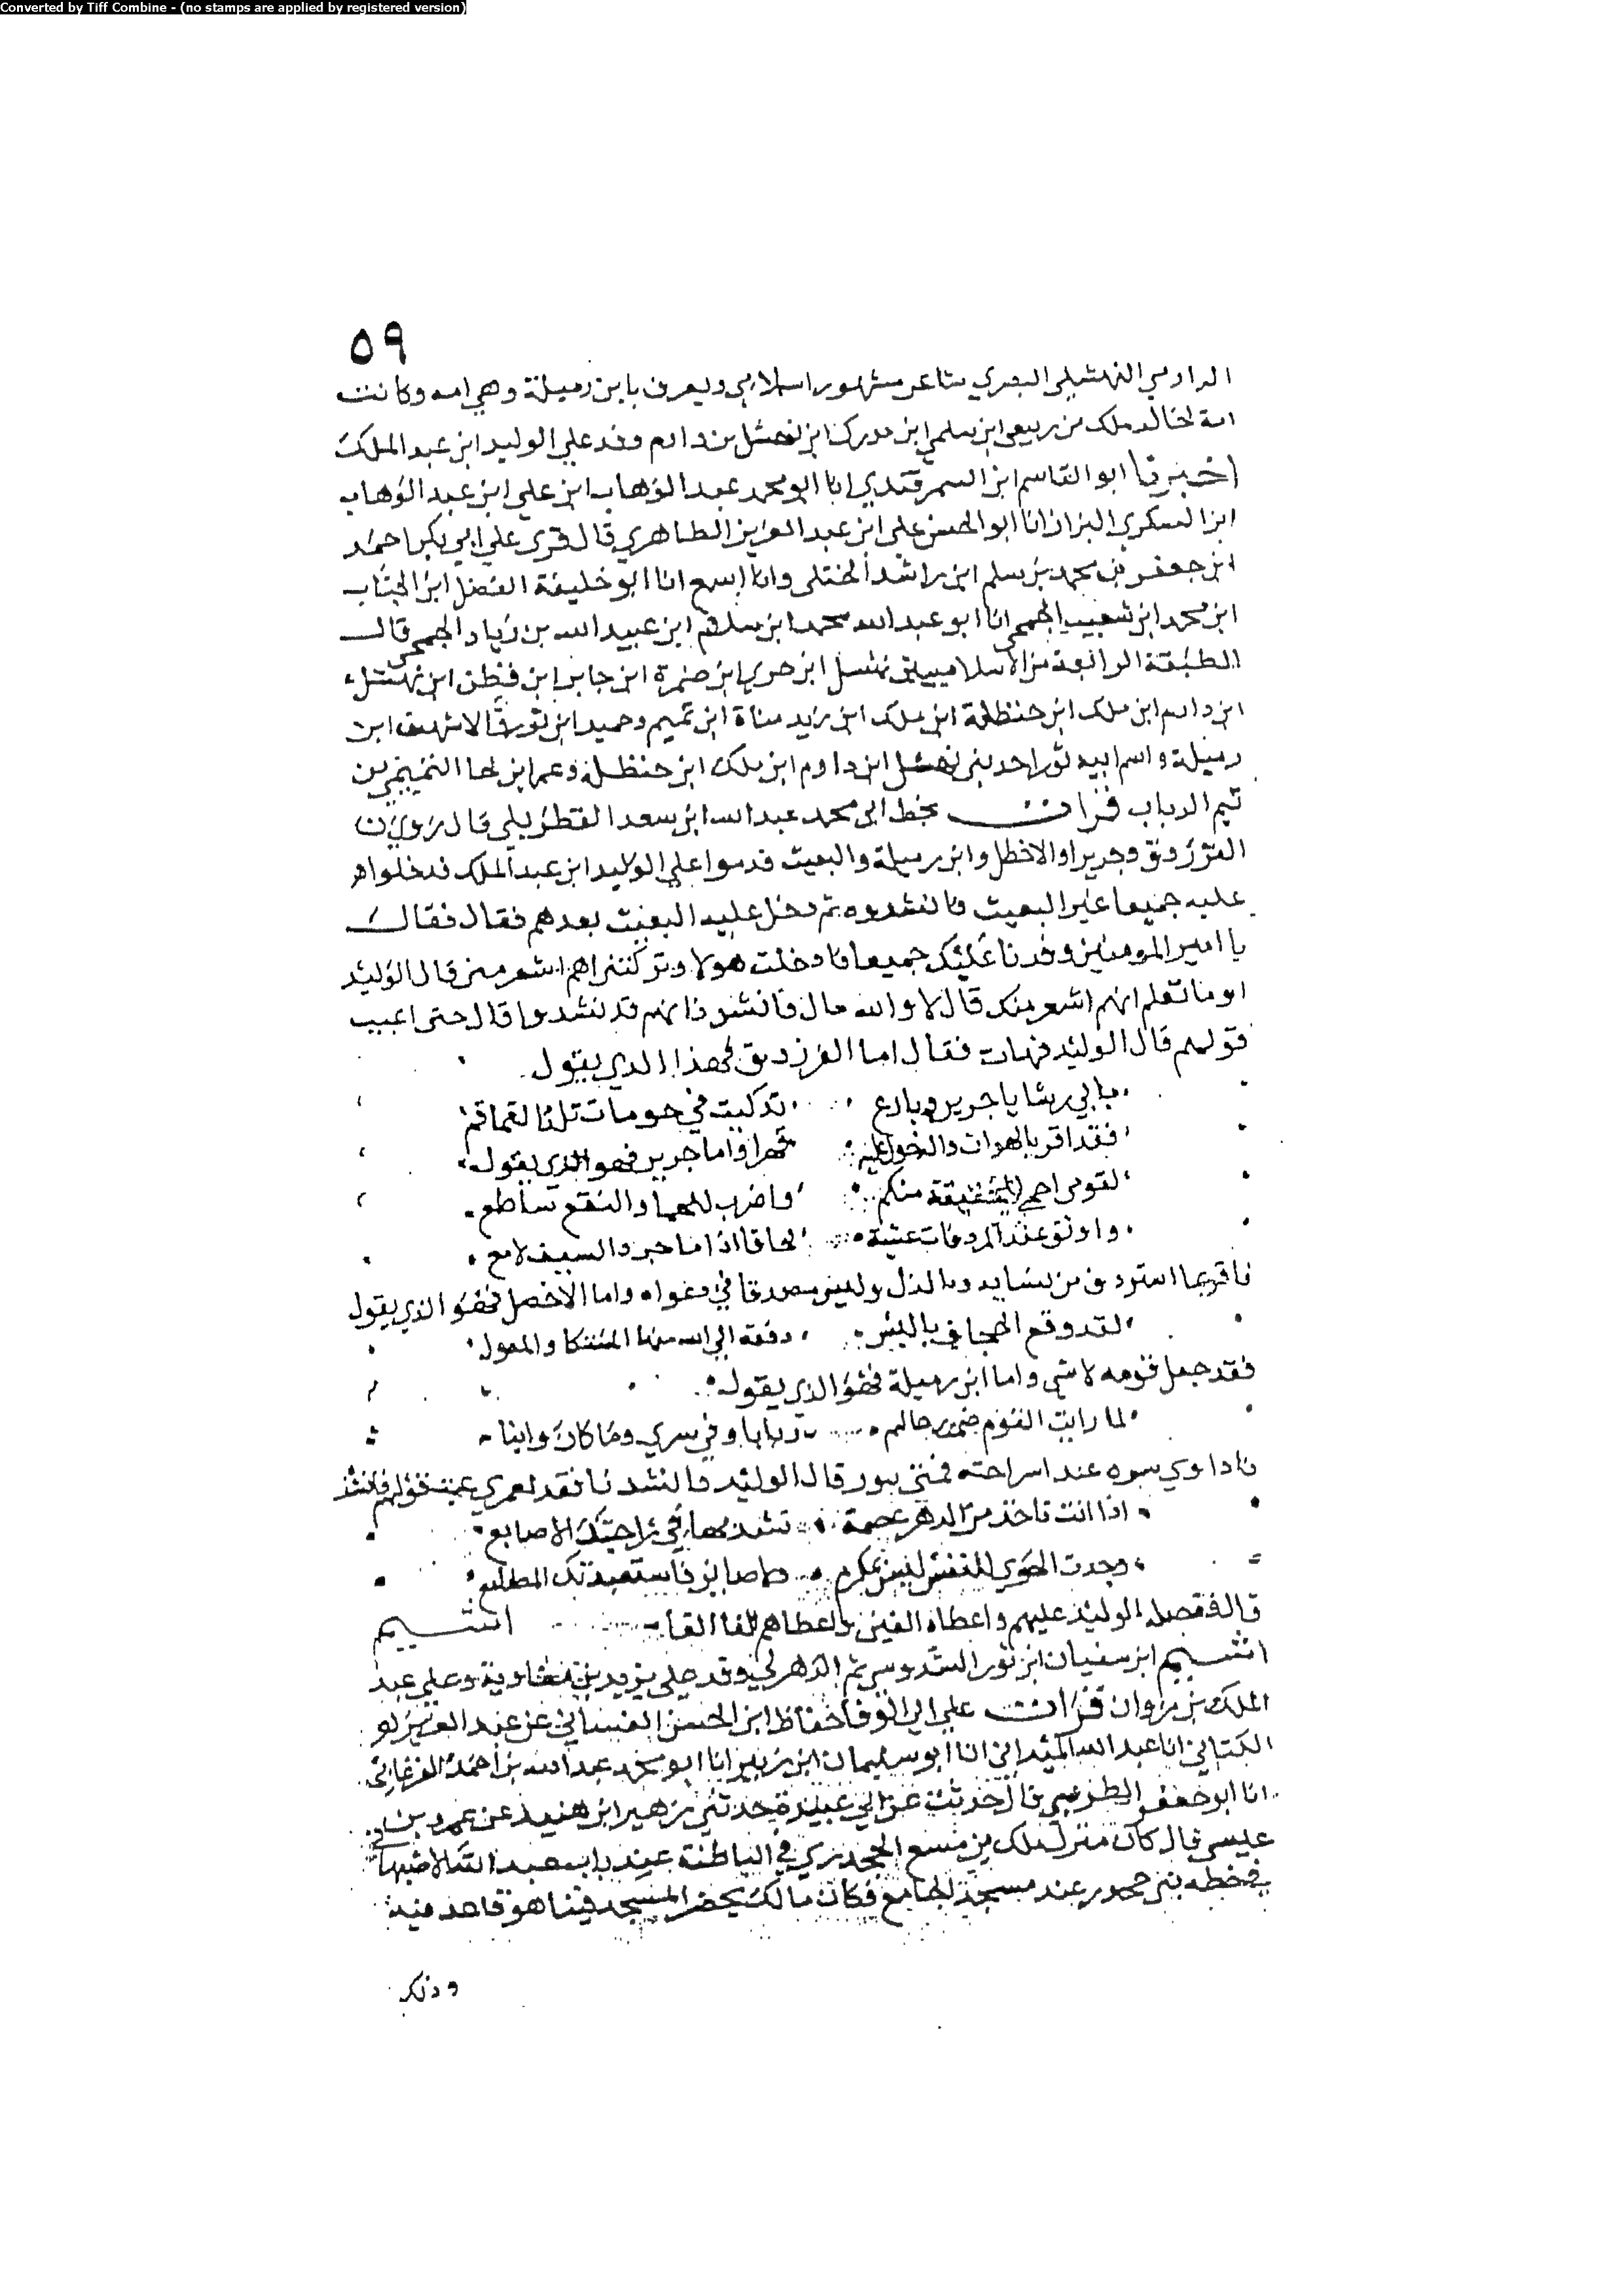 Converted by Tiff Combine - (no stamps are applied by registered version)
٥٩
الدارمي النهشلي البصري شاعر مشهور اسلامي ويعرف بابن رميلة وهي امه وكانت
امة لخالد ملك بن ربعي ابن سلمي ابن نهشل بن دارم وفد علي الوليد ابن عبد الملك
اخبرنا ابو القاسم ابن السمرقندي انا ابو محمد عبد الوهاب ابن علي ابن عبد الوهاب
ابن السكري البزاز انا ابو الحسن علي ابن عبد العزيز الطاهري قال قري علي ابي بكر احمد
ابن جعفر بن محمد بن سلم ابن راشد الختلي وانا اسمع انا ابو خليفة الفضل ابن الحباب
ابن محمد ابن شعيب الجمحي انا ابو عبد الله محمد ابن سلام ابن عبيد الله بن زياد الجمحي قال
الطبقة الرابعة من الاسلاميين نهشل ابن حري ابن ضمرة ابن جابر ابن قطن ابن نهشل
ابن دارم ابن ملك ابن حنظلة ابن ملك ابن زيد مناة ابن تميم وحميد ابن ثور والاشهب ابن
رميلة واسم ابيه ثور احد بني نهشل ابن دارم ابن ملك ابن حنظلة وعمر ابن لجا التيمي من
تيم الرباب قرات بخط ابي محمد عبد الله ابن سعد القطربلي قال روي ان
الفرزدق وجرير او الاخطل وابن رميلة والبعيث قدموا علي الوليد ابن عبد الملك فدخلوا
عليه جميعا غير البعيث فانشدوه ثم دخل عليه البعيث بعدهم فقال فقال
يا امير المومنين وفدنا عليك جميعا فادخلت هولا وتركتني اهم اشعر مني قال الوليد
اوما تعلم انهم اشعر منك قال لا والله قال فانشد فانهم قد نشدوا قال حتي اعيب
قولهم قال الوليد فهات فقال اما الفرزدق فهذا الذي يقول
بابي رشا يا جرير
فقد اقر بالهوان قهرا واما جرير فهو الذي يقول
لقومي احمي للحقيقة منكم واضرب للجبار والنقع ساطع
واوثق عند المردفات عشية لحاقا اذا ما جرد السيف لامع
وليس مصدقا في دعواه واما الاخطل فهو الذي يقول
لقد وقع الجحاف بالبشر وقعة الي الله منها المشتكا والمعول
فقد جعل قومه لا شي واما ابن رميلة فهو الذي يقول
لما رايت القوم ضمت حبالهم وفي سري وما كان وانيا
قال الوليد فانشدنا فقد لعمري عبت قولهم فانشد
اذا انت تاخذ من الدهر عصمة تشد بها في راحتيك الاصابع
وجدت الهوي للنفس ليس بمكرم فاستعبدتك المطامع
قال ففضله الوليد عليهم واعطاه الفين واعطاهم الفا الفا اشيم
اشيم ابن سفيان ابن ثور السدوسي ثم الذهلي وفد علي يزيد بن معاوية وعلي عبد
الملك بن مروان قرات علي ابي الوفا حفاظ ابن الحسن الغساني عن عبد العزيز
الكتاني انا عبد الله الميداني انا ابو سليمان ابن زبر انا ابو محمد عبد الله بن احمد الفرغاني
انا ابو جعفر الطبري قال حدثت عن ابي عبيدة حدثني زهير ابن هنيد عن عمرو بن
عيسي قال كان منزل ملك بن مسمع الجحدري في الباطنة عند باب عبد الله الاصبهاني
في خطه بني جحدر عند مسجد الجامع فكان مالك يحضر المسجد فبينا هو قاعد فيه
وذلك